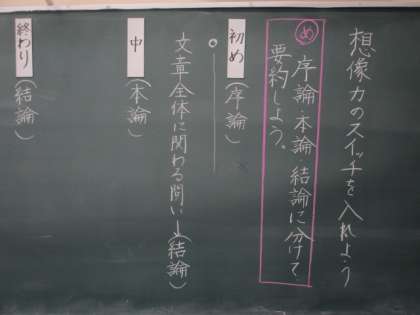 想像力のスイッチを入れよう
め 序論・本論・結論に分けて
要約しよう。
初め(序論)
文章全体に関わる問い→(結論)
中(本論)
終わり(結論)